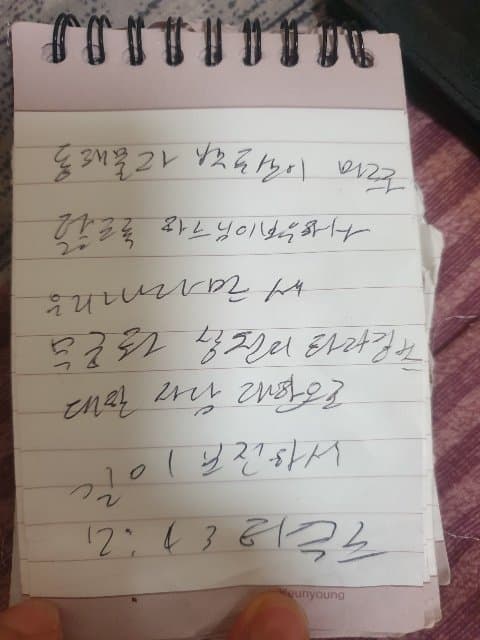 동해물과 백두산이 마르고
닳도록 하느님이 보우하사
우리나라만세
무궁화 삼천리 화려강산
대한 사람 대한으로
길이 보전하세